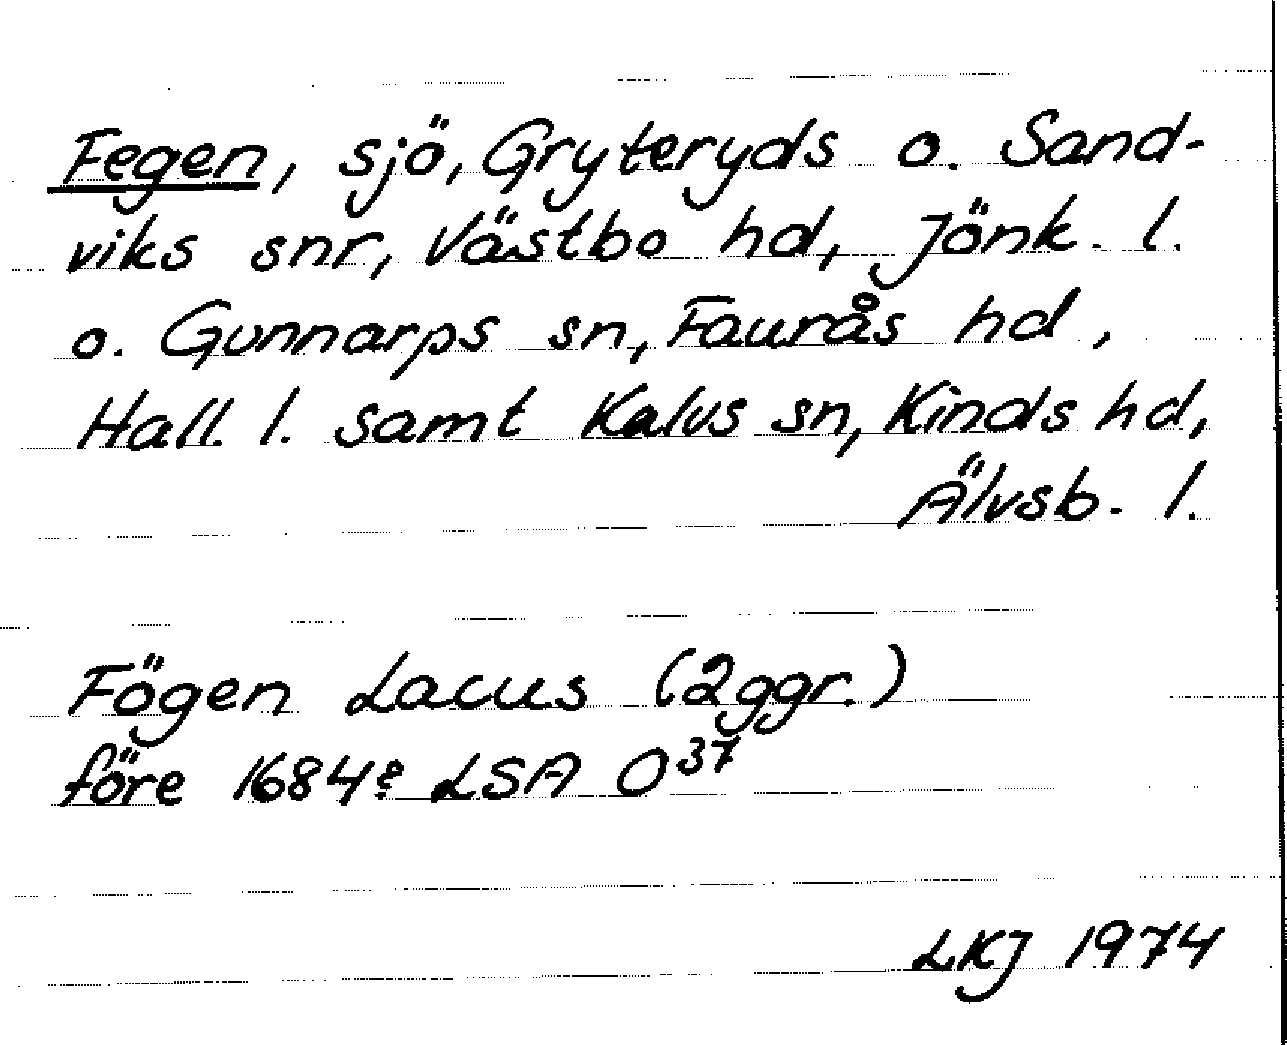 Fegen, sjö, Gryteryds o. Sand-
viks snr, Västbo hd, Jönk. l.
o. Gunnarps sn, Faurås hd,
Hall. l. samt Kalvs sn, Kinds hd,
Älvsb. l.
Fögen Lacus (2ggr.)
före 1684? LSA O³⁷
LKJ 1974